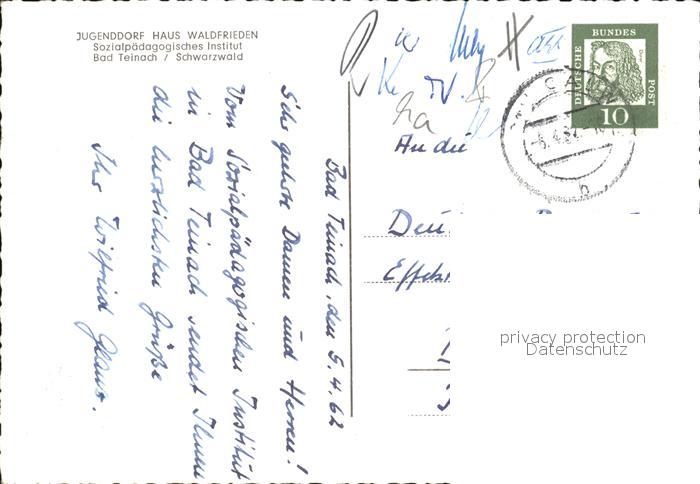 JUGENDDORF HAUS WALDFRIEDEN
Sozialpädagogisches Institut
Bad Teinach / Schwarzwald
Bad Teinach, den 5.4.62
Sehr geehrte Damen und Herren!
Vom Sozialpädagogischen Institut
in Bad Teinach sendet Ihnen
die herzlichsten Grüße
Ihr Wilfried
An die
Deu
Effek
DEUTSCHE BUNDES POST
Dürer
10
CALW
-6.4.62
b
privacy protection
Datenschutz